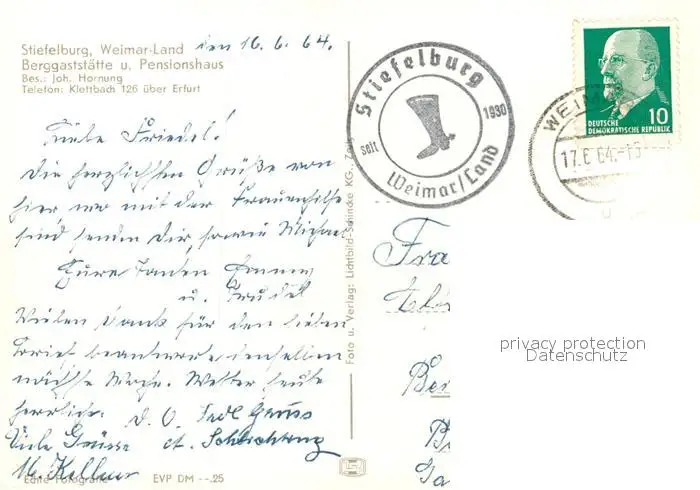 Stiefelburg, Weimar-Land
Berggaststätte u. Pensionshaus
Bes.: Joh. Hornung
Telefon: Klettbach 126 über Erfurt
den 16. 6. 64.
Liebe Friedel!
Die herzlichsten Grüße von
hier wo mit der Frauenhilfe
sind senden Dir, sowie Michael
Eure Tanten
u. Trudel
Vielen Dank für den lieben
Brief beantworte denselben
nächste Woche. Wetter heute
herrlich. D. O.
Viele Grüsse
M. Kellner
Echte Fotografie EVP DM --.25
Foto u. Verlag: Lichtbild-Schincke KG., Zeitz
Stiefelburg
seit 1930
Weimar/Land
DEUTSCHE
DEMOKRATISCHE REPUBLIK
10
WEIM
17.6.64.-13
Fra
privacy protection
Datenschutz